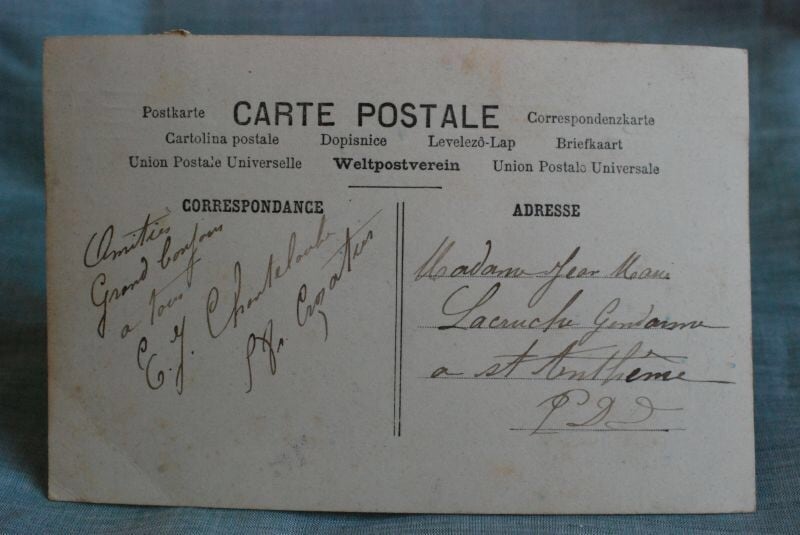 Postkarte CARTE POSTALE Correspondenzkarte
Cartolina postale Dopisnice Levelezõ-Lap Briefkaart
Union Postale Universelle Weltpostverein Union Postale Universale
CORRESPONDANCE
Amitiés
Grand bonjour
a tous
J. Chantelaube
ADRESSE
Madame Jean Marie
Lacruche Gendarme
a st Anthême
PDD